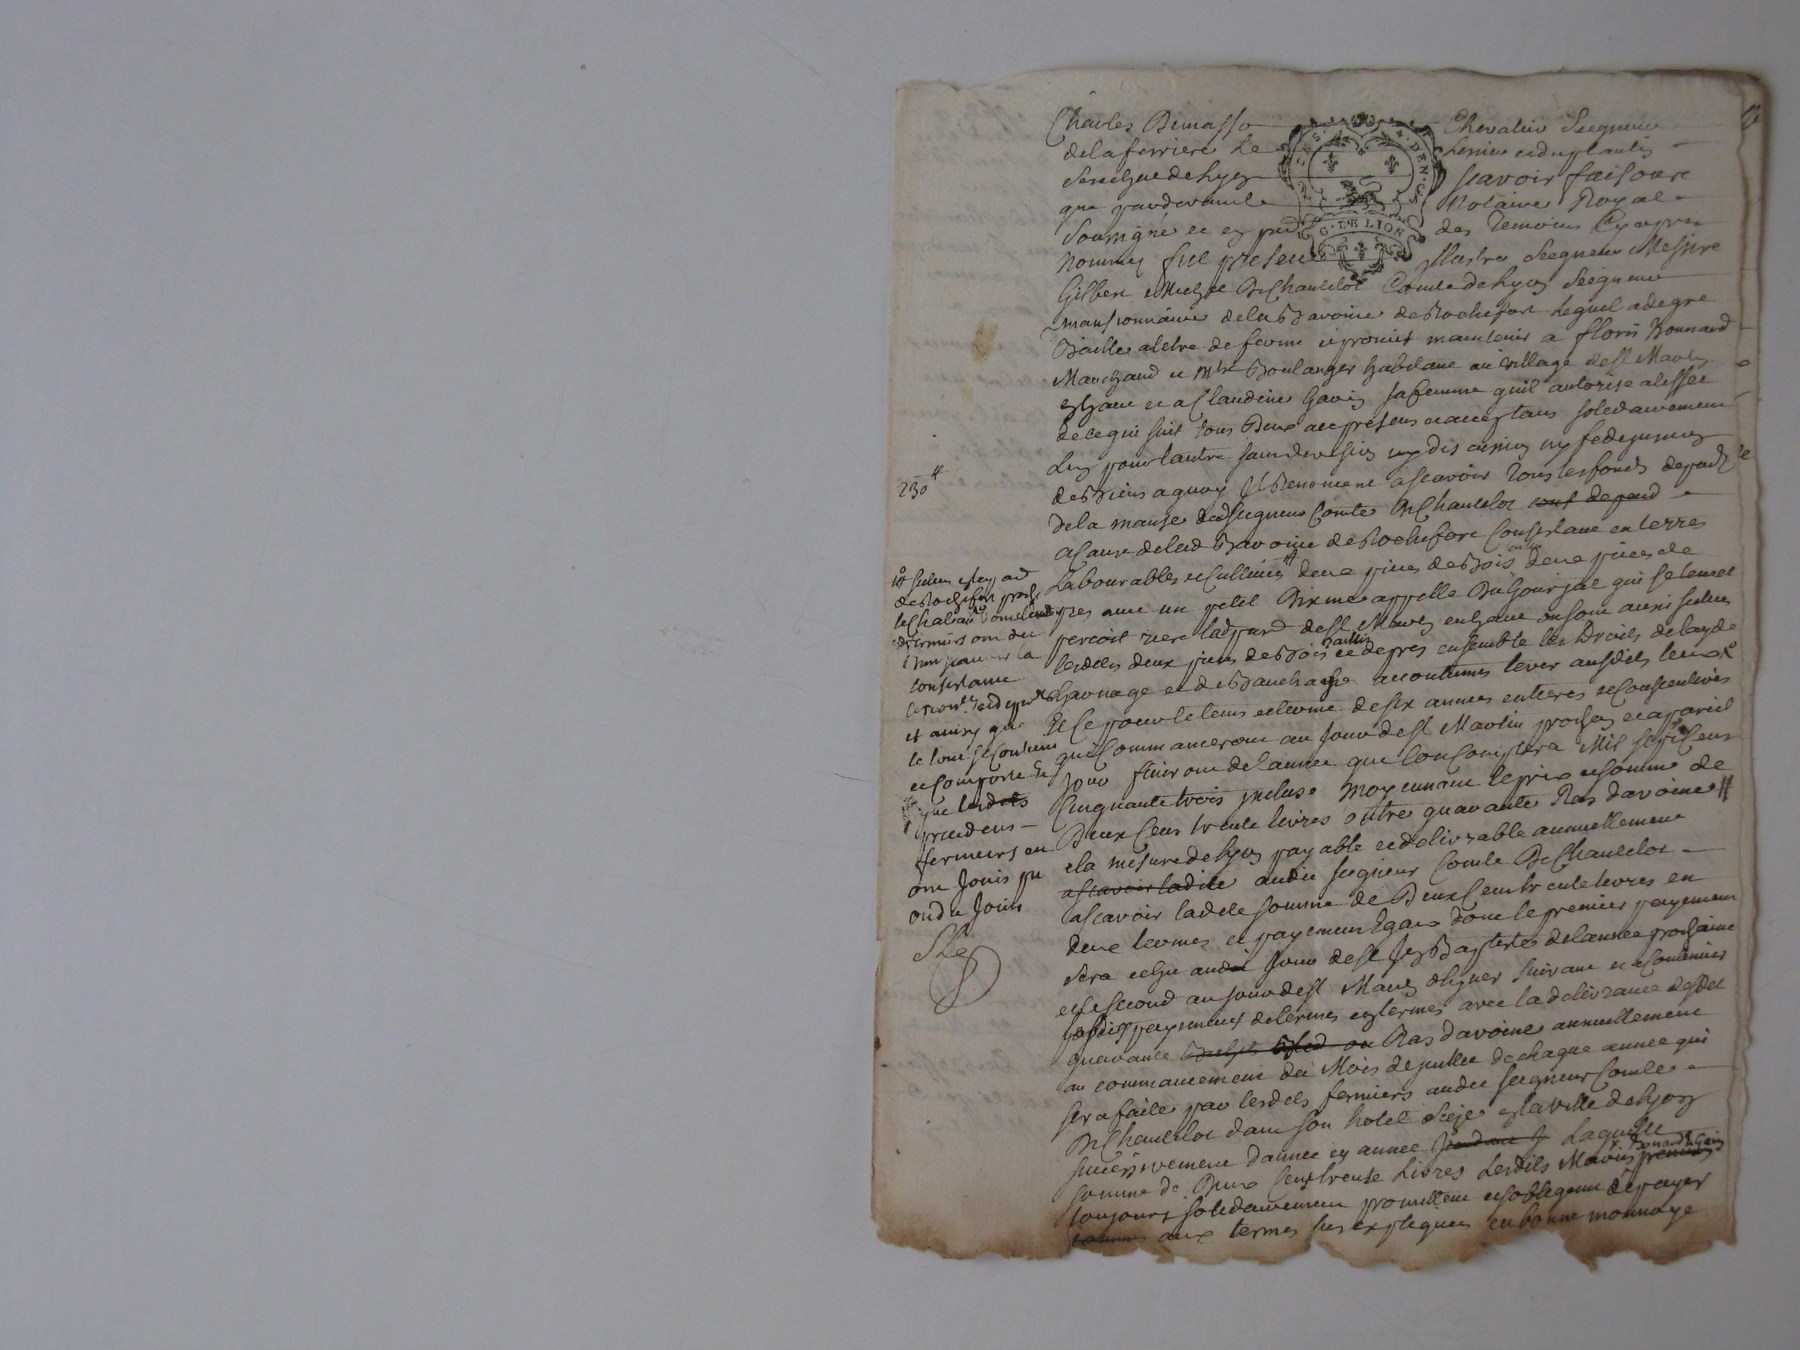 Charles Demasso Chevalier Seigneur
de la ferriere Le Lessieu et du plantis
Senechal de Lyon Scavoir faisons
que pardevant le Notaire Royal
Soussigné et en pnce des Temoins Cy apres
GEN. DE LION
Nommez fut present Illustre Seigneur Messire
Gilbert Michel De Chantelot Comte de Lyon Seigneur
mansionnaire de la Bavoine de Rochefort Lequel a de gre
Baille a tiltre de ferme et promet maintenir a floris Bonnard
Marchand et Mtre Boulanger habitant au village de St Martin
en haut et a Claudine Gavin sa femme quil autorise a leffet
de ce qui suit tous Deux acy presens et acceptans solidairement
Lun pour lautre sans division ny discution ny fidejussion
230 ₶
des Biens a quoy ils Renoncent a scavoir Tous les fonds depend
de la manse dud Seigneur Comte De Chantelot
a Cause de lad Bavoine de Rochefort Consistant en terres
Labourables et Cultives deux pieces de Bois deux pieces de
pres avec un petit Dixme appelle Du Gourjat qui se leve et
percoit riere lad parr de St Martin en haut
lesdits deux pieces de Bois et de pres ensemble les Droits de layde
charnage et de Bauchage accoutumés lever ausdits lieux
Et Ce pour le tems et terme de six années entieres et Consecutives
qui Commanceront au Jour de St Martin prochain et a pareil
Jour finiront de lannée que lon Comptera Mil sept Cens
Cinquante trois Incluse Moyennant le prix et somme de
Deux Cens trente livres outre quarante Ras davoine
a la mesure de Lyon payable et delivrable annuellement
a scavoir ladite audit seigneur Comte De Chantelot
a scavoir ladite somme de Deux Cens trente livres en
deux termes et payemens Egaux dont le premier payement
sera echu audit Jour de St Jean Baptiste de lannée prochaine
et le second au jour de St Martin dhyver suivant et a Continuer
lesdits payemens de termes en termes avec la delivrance desdits
quarante Ras davoine annuellement
au commancement du Mois de juillet de chaque année qui
sera faite par lesdits fermiers audit seigneur Comte
De Chantelot dans son hotel size en la ville de Lyon
successivement dannée en année Laquelle
somme de Deux Cens trente Livres Lesdits Mariés Bonard & Gavin
toujours solidairement promettent et sobligent de payer
aux termes sus expliqués en bonne monnoye
de Rochefort proche
le Chateau
fermiers ont dit
la
consistance
et ainsy que
le tout se Contient
et Comporte Et
que lesdits
precedens
fermiers en
ont Jouis pu
ou du Jouir